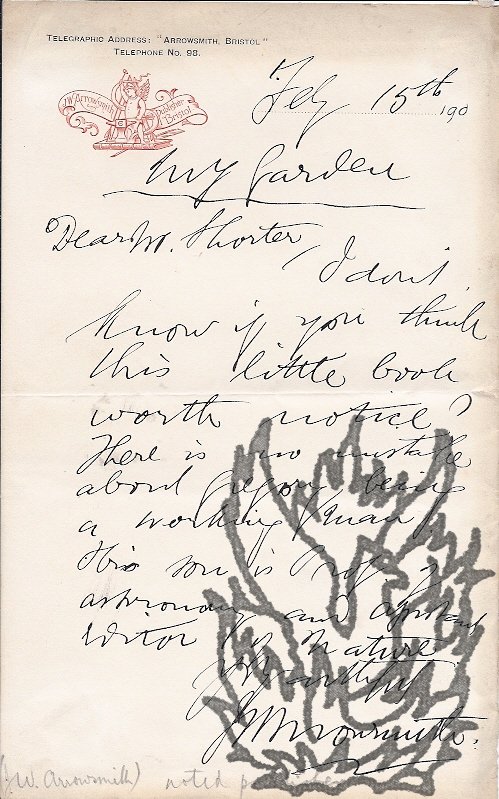 TELEGRAPHIC ADDRESS: "ARROWSMITH, BRISTOL"
TELEPHONE NO. 98.
J.W. Arrowsmith Publisher Bristol
Feb 15th 190
My Garden
Dear Mr. Shorter,
I dont
know if you think
this little book
worth notice?
There is no mistake
about Gregory being
a working man
His son is Prof. of
astronomy and assistant
Editor of Nature
Yrs faithfully
JWArrowsmith.
(J.W. Arrowsmith) noted publisher